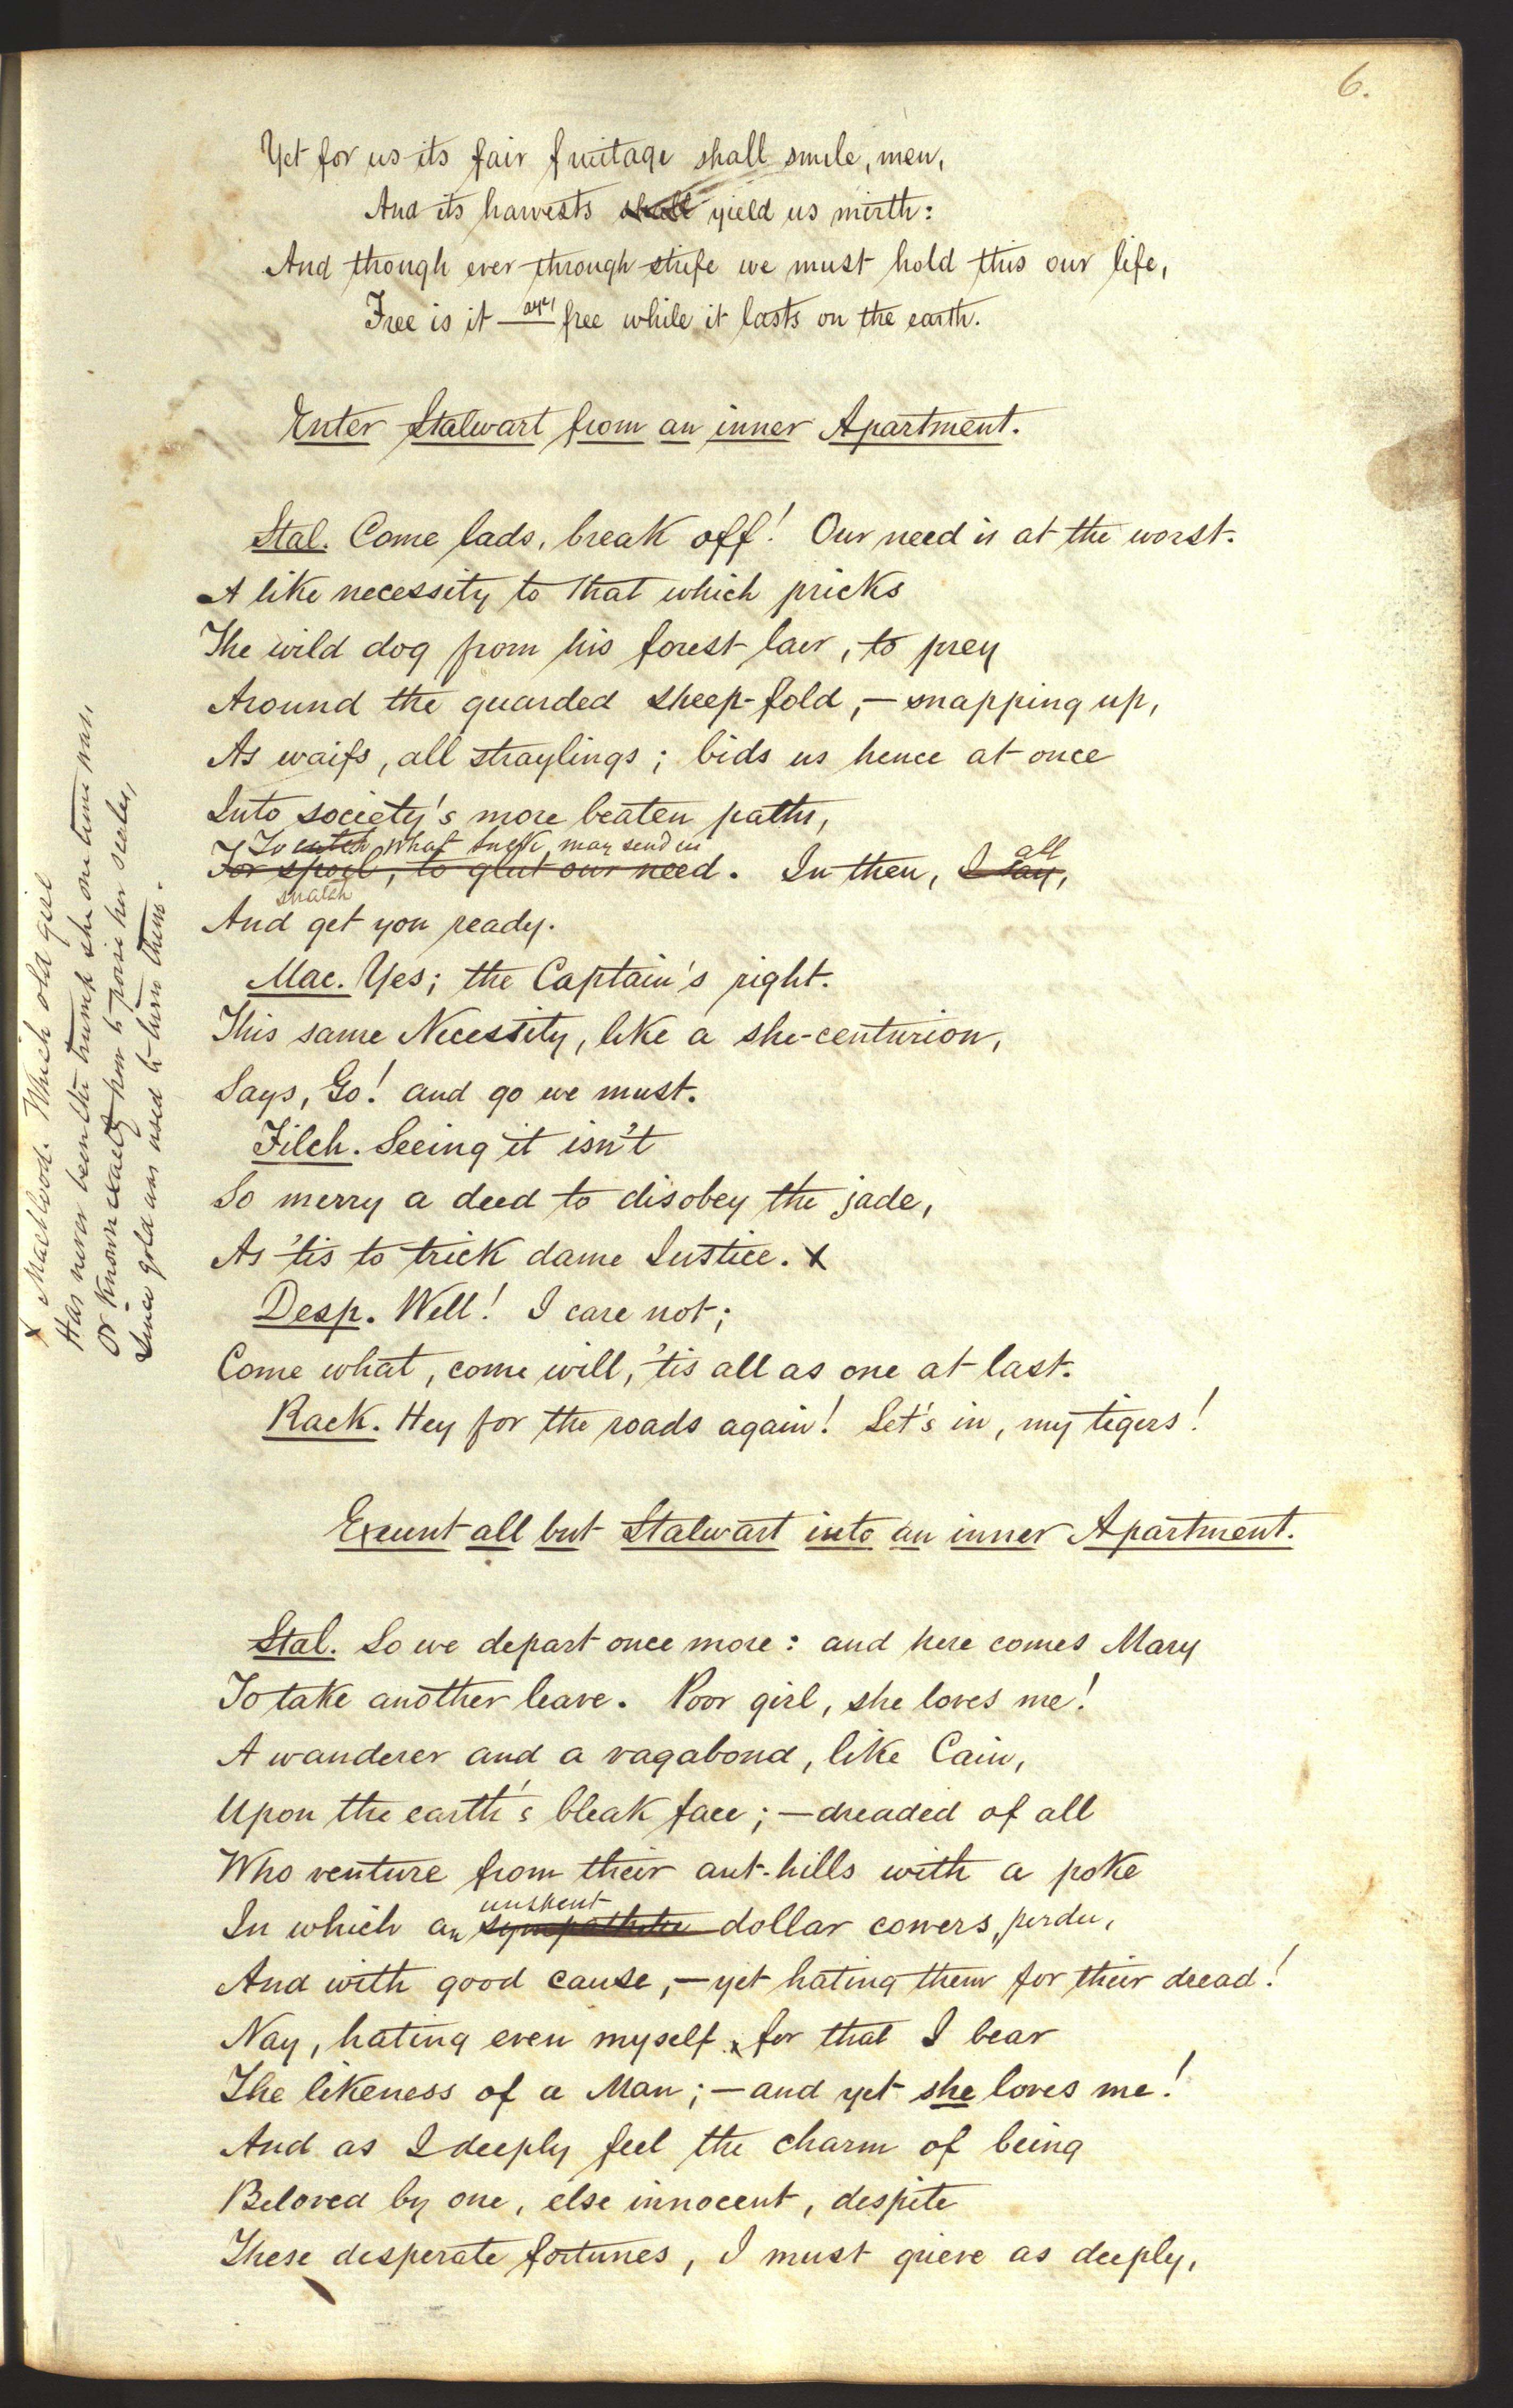 6.
Yet for us its fair fruitage shall smile, men,
And its harvests shall yield us mirth:
And though ever through strife we must hold this our life,
Free is it — aye, free while it lasts on the earth.
Enter Stalwart from an inner Apartment.
Stal. Come lads, break off! Our need is at the worst.
A like necessity to that which pricks
The wild dog from his forest lair, to prey
Around the guarded sheep-fold,—snapping up,
As waifs, all straylings; bids us hence at once
Into society's more beaten paths,
To catch what luck may send us
For spoil, to glut our need. In then, I say, all
snatch
And get you ready.
Mac. Yes; the Captain's right.
This same Necessity, like a she-centurion,
Says, Go! and go we must.
Filch. Seeing it isn't
So merry a deed to disobey the jade,
As 'tis to trick dame Justice. x
Desp. Well! I care not;
Come what, come will, 'tis all as one at last.
Rack. Hey for the roads again! Let's in, my tigers!
Exeunt all but Stalwart into an inner Apartment.
Stal. So we depart once more: and here comes Mary
To take another leave. Poor girl, she loves me!
A wanderer and a vagabond, like Cain,
Upon the earth's bleak face;—dreaded of all
Who venture from their ant-hills with a poke
unspent
In which an sympathetic dollar cowers, perdu,
And with good cause,—yet hating them for their dread!
Nay, hating even myself, for that I bear
The likeness of a Man;—and yet she loves me!
And as I deeply feel the charm of being
Beloved by one, else innocent, despite
These desperate fortunes, I must grieve as deeply,
x Mac. Which old girl
Has never been the trump she one time was,
Or known exactly how to poise her scales,
Since gold was used to turn them.